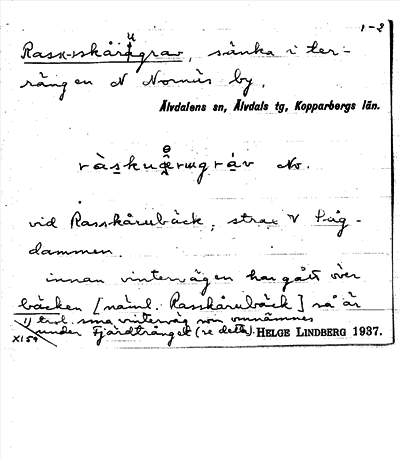 1-2
Rasskårugrav, sänka i ter-
rängen N Nornäs by.
Älvdalens sn, Älvdals tg, Kopparbergs län.
No.
vid Rasskårubäck, strax V Såg-
dammen.
innan vintervägen har gått över
bäcken [näml. Rasskårubäck] så är
1) trol. sma vinterväg som omnämnes
under Fjärdtränget (se detta).
HELGE LINDBERG 1937.
XI 59